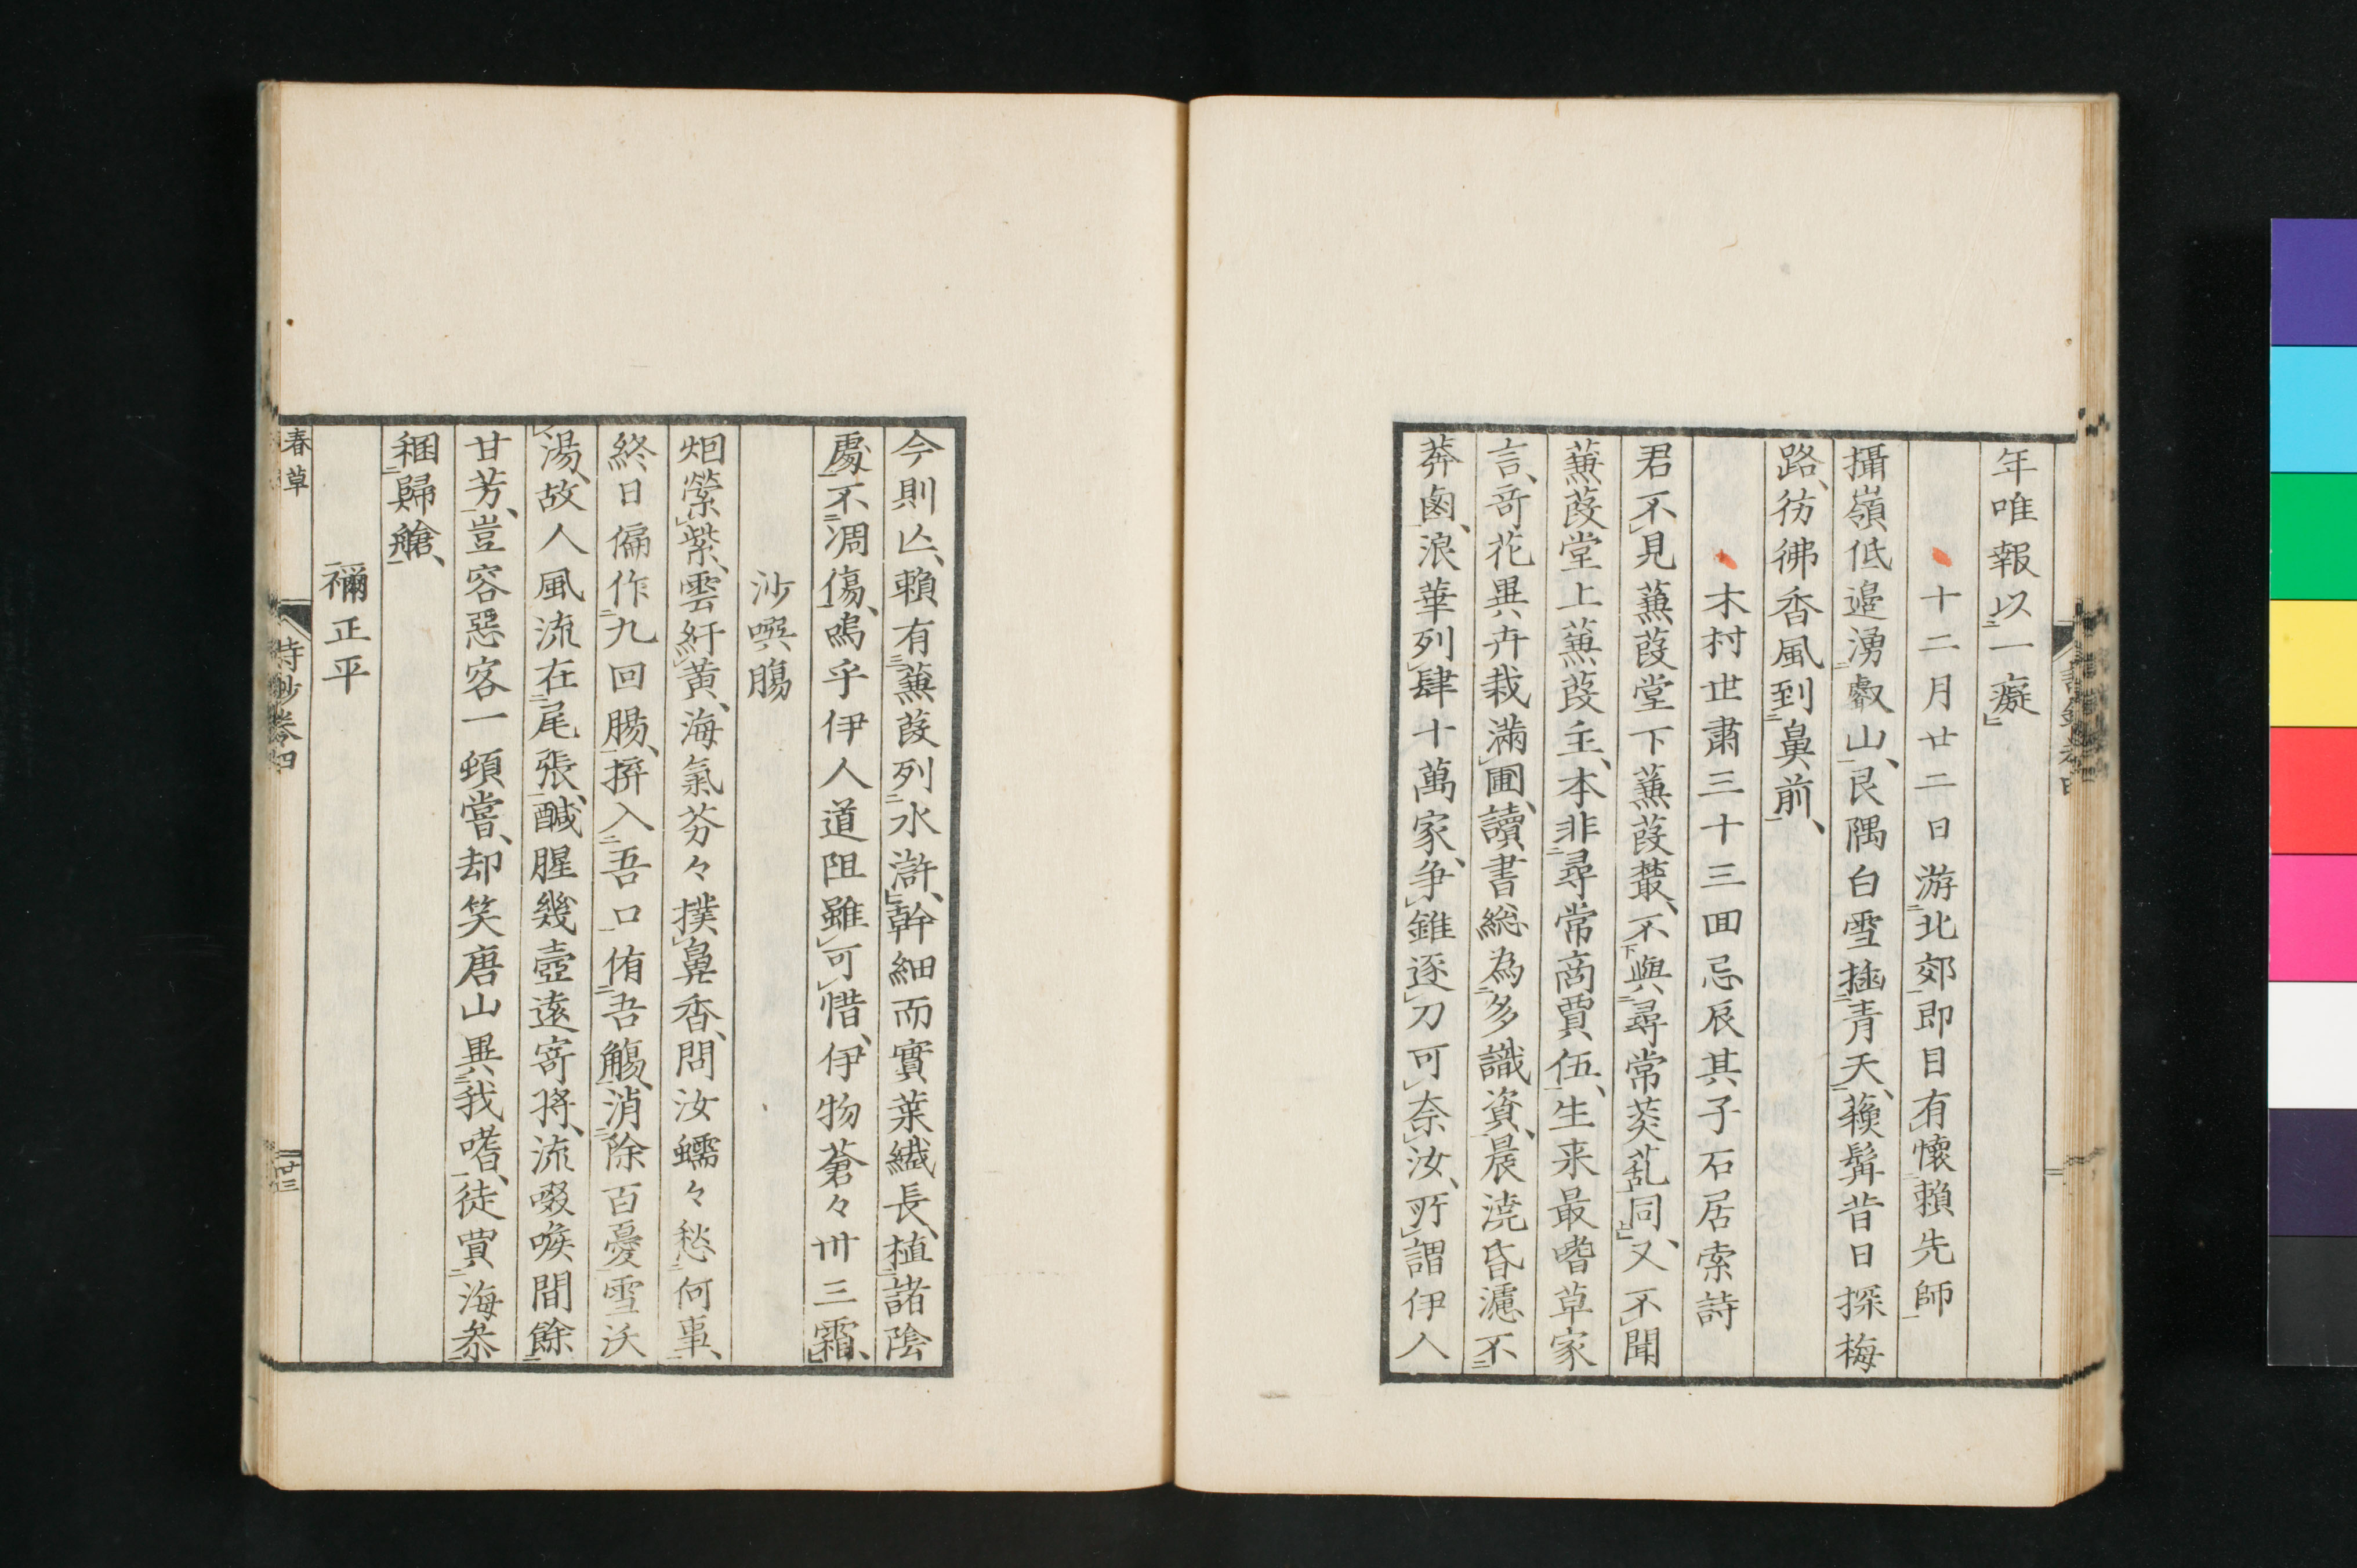 年唯報以一癡
十二月廿二日游北郊即目有懷賴先師
攝嶺低邉湧叡山、艮隅白雪插青天、蘓髯昔日探梅
路、彷彿香風到鼻前、
木村世肅三十三回忌辰其子石居索詩
君不見蒹葭堂下蒹葭叢、不與尋常茭乱同、又不聞
蒹葭堂上蒹葭主、本非尋常商賈伍、生来最嗜草家
言、奇花異卉栽滿圃、讀書総為多識資、晨澆昏漉不
莽鹵、浪華列肆十萬家、争錐逐刀可奈汝、所謂伊人
今則亾、賴有蒹葭列水滸、幹細而實葉纎長、植諸陰
處不凋傷、嗚乎伊人道阻雖可惜、伊物蒼々卅三霜、
沙噀腸
烟縈紫、雲紆黃、海氣芬々撲鼻香、問汝蠕々愁何事、
終日偏作九回腸、拚入吾口侑吾觴、消除百憂雪沃
湯、故人風流在尾張、醎腥幾壺遠寄将、流啜喉間餘
甘芳、豈容惡客一頓嘗、却笑唐山異我嗜、徒賞海参
稛歸艙、
禰正平
春草
詩鈔卷四
廿三